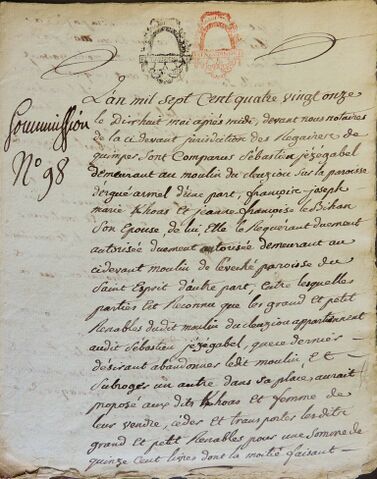 Soummission
N° 98
L'an mil sept Cent quatre vingt onze
le Dixhuit mai après midy, devant nous notaires
de la ci devant jurisdiction des Regaires de
quimper Sont Comparus Sébastien jézégabel
demeurant au moulin du Cleuziou Sur la paroisse
dergué armel d'une part, françois-joseph
marie Khoas et jeanne françoise le Bihan
Son Epouse, de lui Elle le Requerant duement
autorisée duement autorisée demeurant au
cidevant moulin de levehé paroisse du
Saint Esprit d'autre part, Entre lesquelles
parties Est Reconnu que les grand et petit
Renables dudit moulin du cleuziou appartiennent
audit Sébastien jézégabel, que ce dernier
désirant abandonner ledit moulin, Et
Subroger un autre dans sa place, aurait
proposé aux dits Khoas et femme de
leur vendre, céder et transporter lesdits
grand et petit Renables pour une Somme de
quinze Cent livres dont la moitié faisant